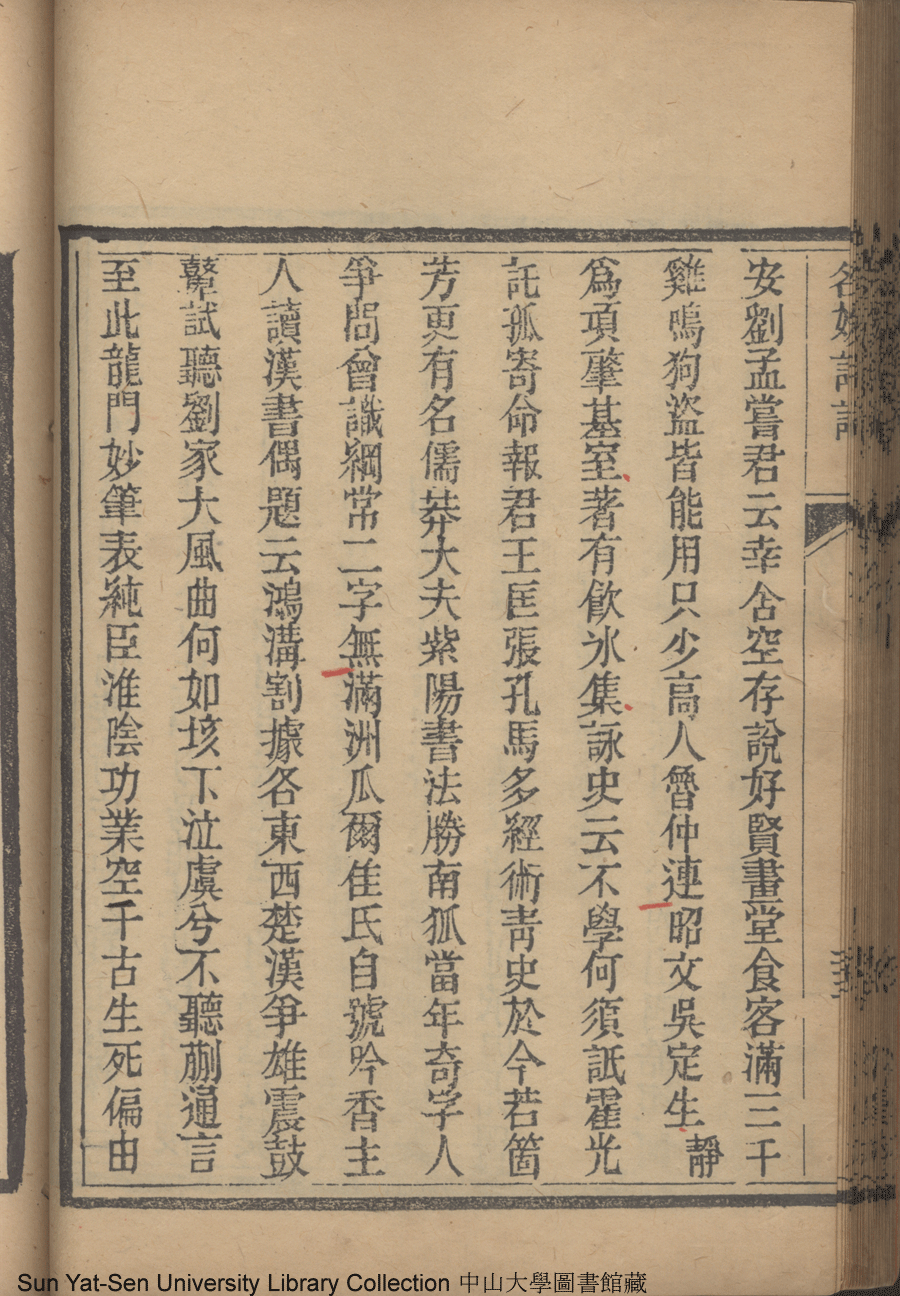 名媛詩話
安劉孟嘗君云幸舍空存說好賢畫堂食客滿三千
雞鳴狗盜皆能用只少高人魯仲連昭文吳定生靜
爲項肇基室著有飲冰集詠史云不學何須詆霍光
託孤寄命報君王匡張孔馬多經術靑史於今若箇
芳更有名儒莽大夫紫陽書法勝南狐當年奇字人
爭問曾識綱常二字無滿洲瓜爾佳氏自號吟香主
人讀漢書偶題云鴻溝割據各東西楚漢爭雄震鼓
鼙試聽劉家大風曲何如垓下泣虞兮不聽蒯通言
至此龍門妙筆表純臣淮陰功業空千古生死偏由
Sun Yat-Sen University Library Collection 中山大學圖書館藏